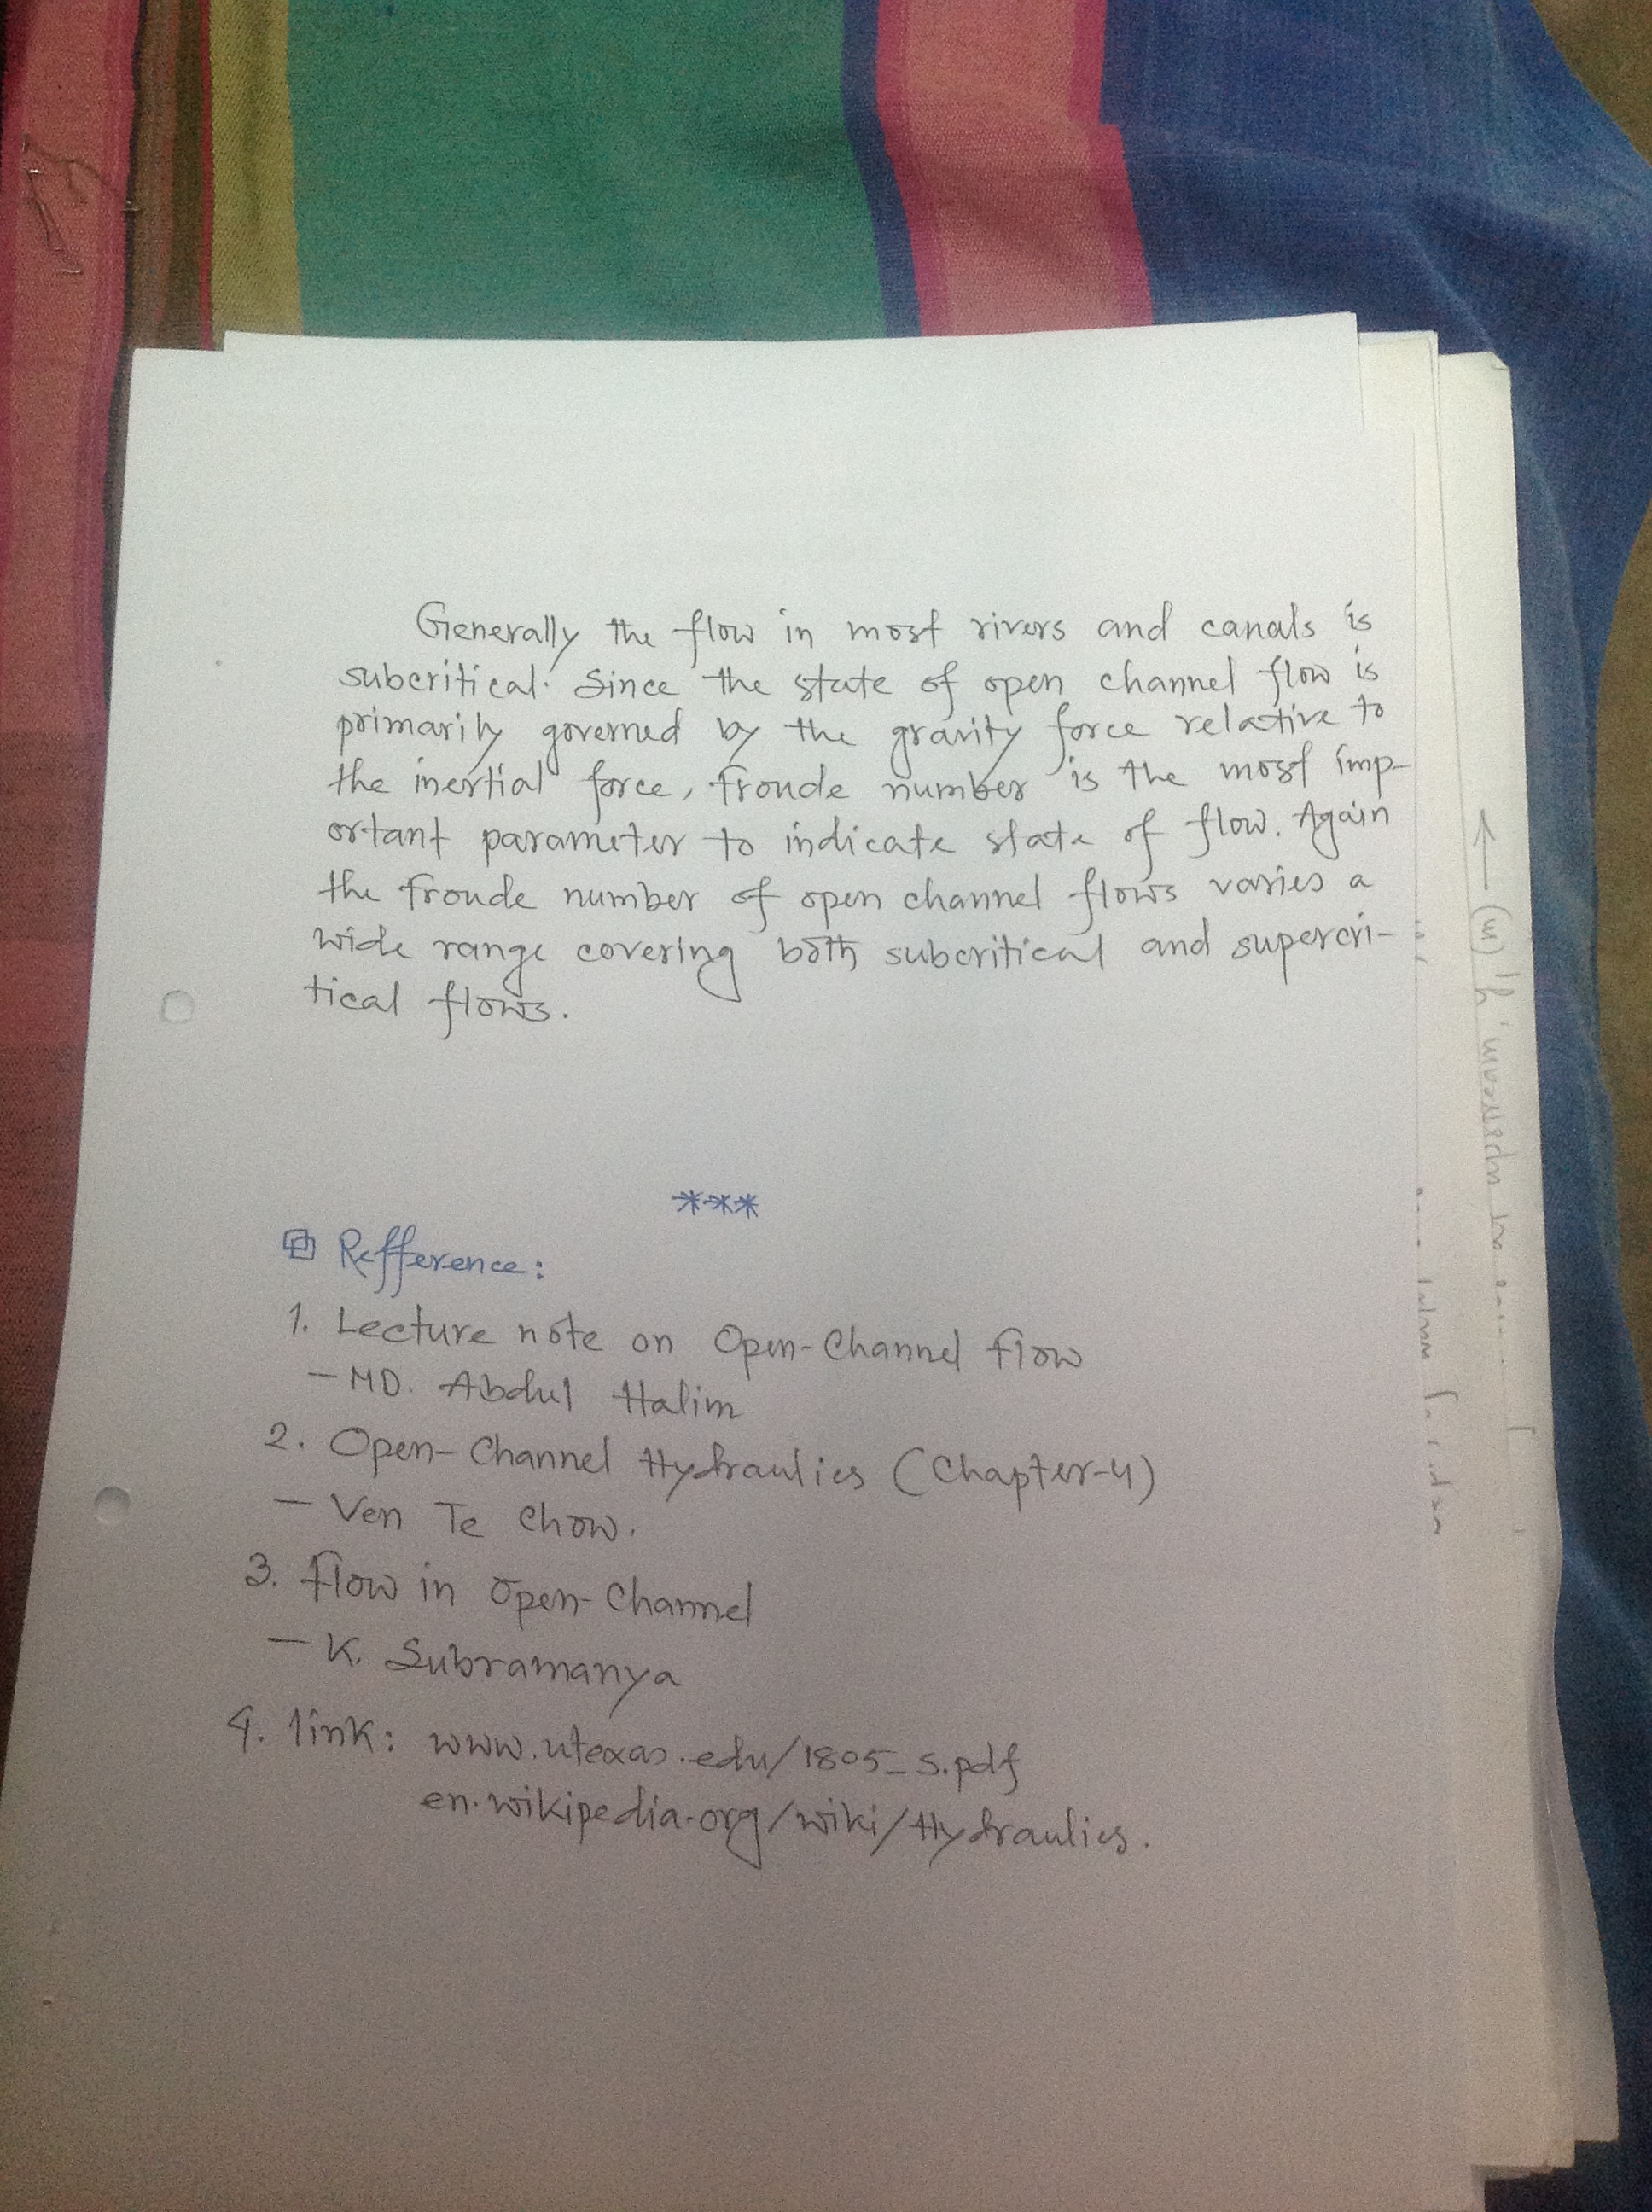 Generally the flow in most rivers and canals is
subcritical. Since the state of open channel flow is
primarily governed by the gravity force relative to
the inertial force, Froude number is the most imp-
ortant parameter to indicate state of flow. Again
the Froude number of open channel flows varies a
wide range covering both subcritical and supercri-
tical flows.
***
Refference:
1. Lecture note on Open-Channel Flow
- MD. Abdul Halim
2. Open-Channel Hydraulics (Chapter-4)
- Ven Te Chow.
3. Flow in Open-Channel
- K. Subramanya
4. link: www.utexas.edu/1805_s.pdf
en.wikipedia.org/wiki/Hydraulics.